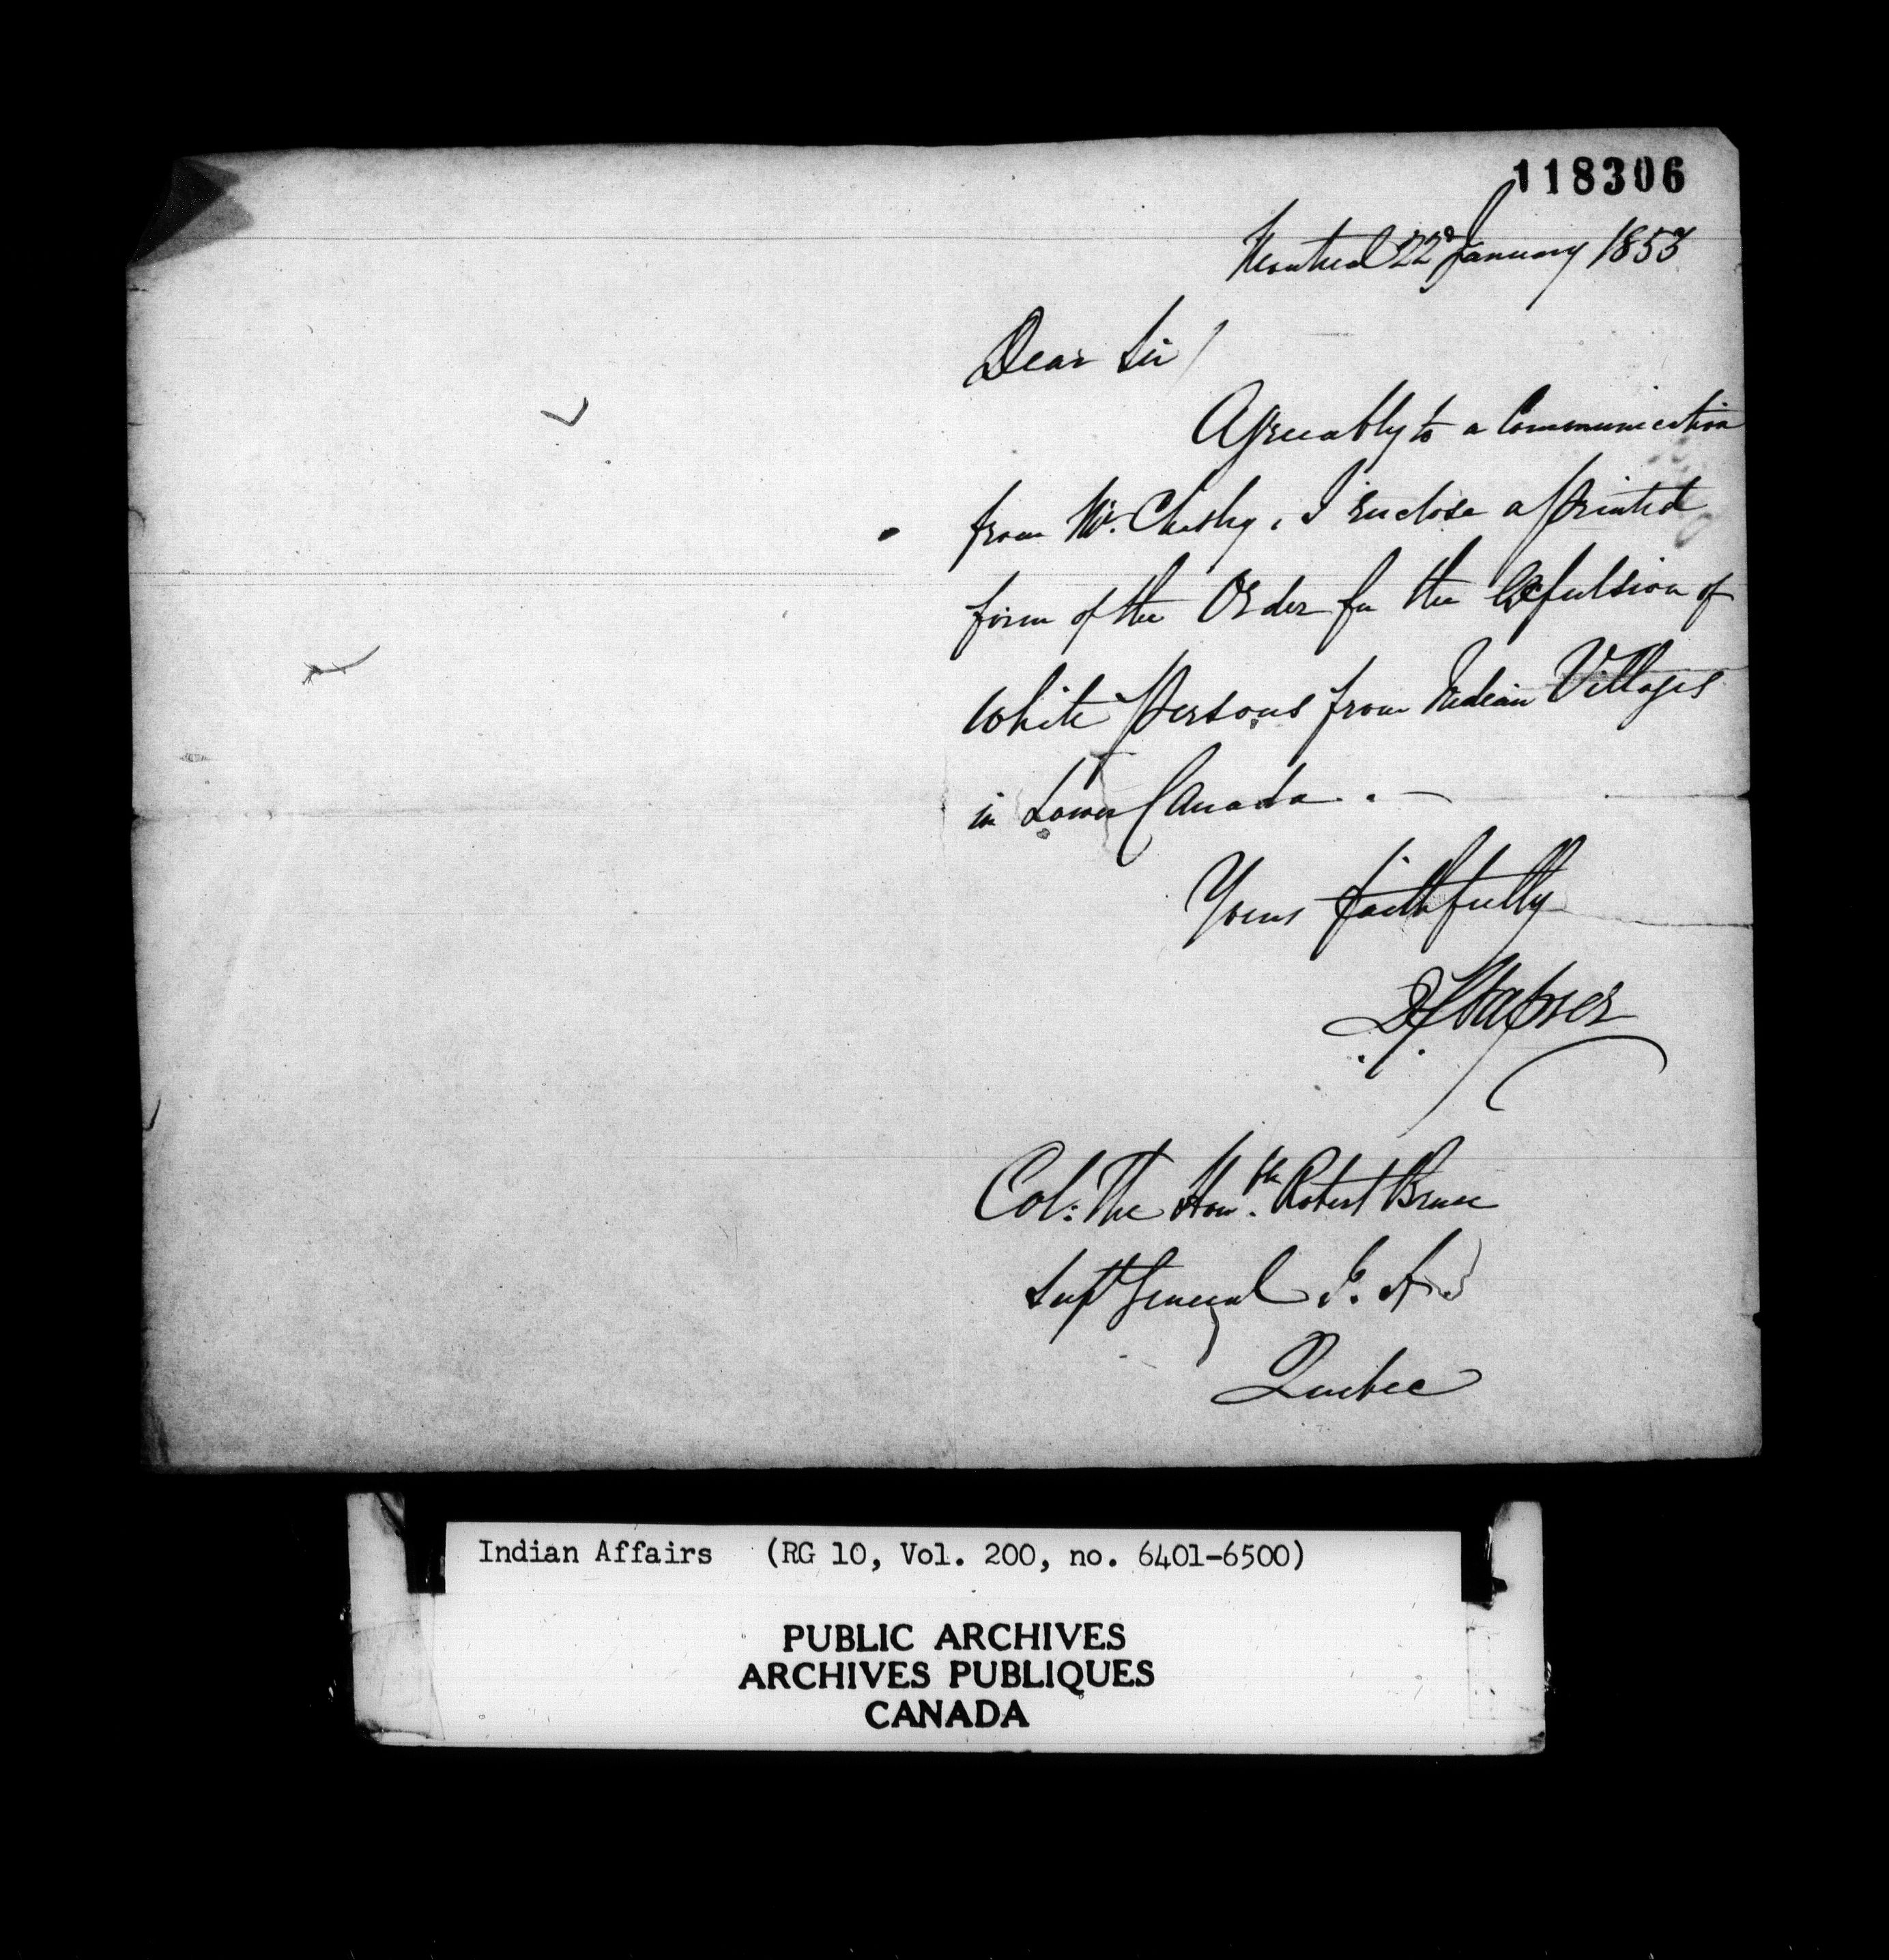 118306
Montreal 22d January 1853
Dear Sir/
Agreeably to a Communication
from Mr. Chesley, I enclose a printed
form of the Order for the Expulsion of
White Persons from Indian Villages
in Lower Canada. . —
Yours faithfully
D C Napier
Col: The Honble. Robert Bruce
Supt General I. A.
Quebec
Indian Affairs (RG 10, Vol. 200, no. 6401-6500)
PUBLIC ARCHIVES
ARCHIVES PUBLIQUES
CANADA